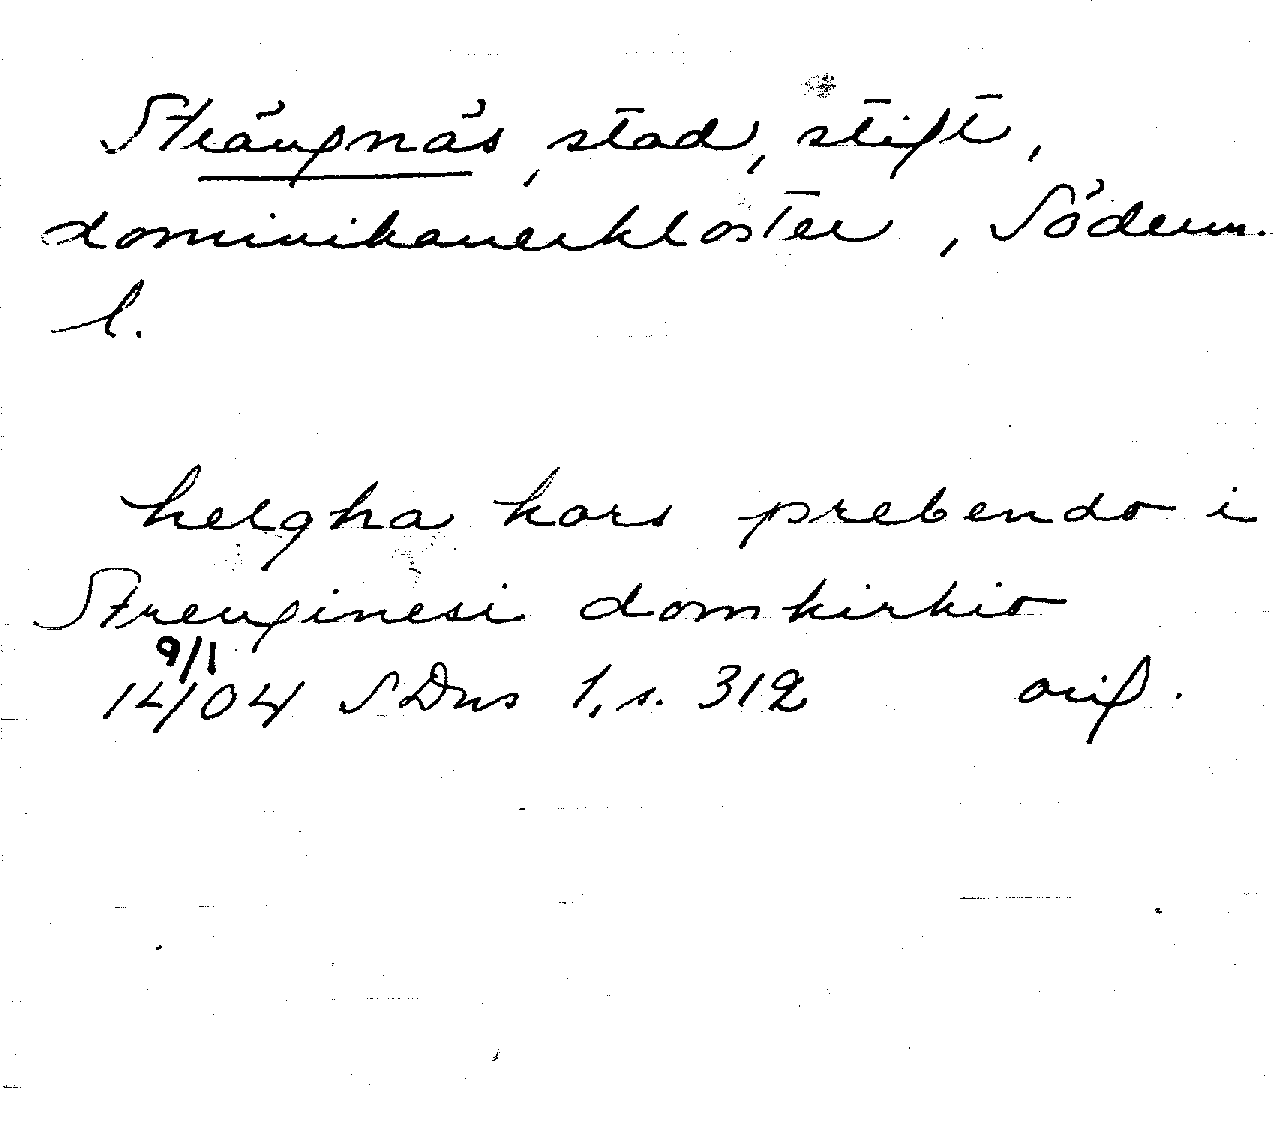 Strängnäs, stad, stift,
dominikanerkloster, Söderm.
l.
helgha kors prebendo i
Strenginesi domkirkio
9/1
1404 SDns 1, s. 312 orig.